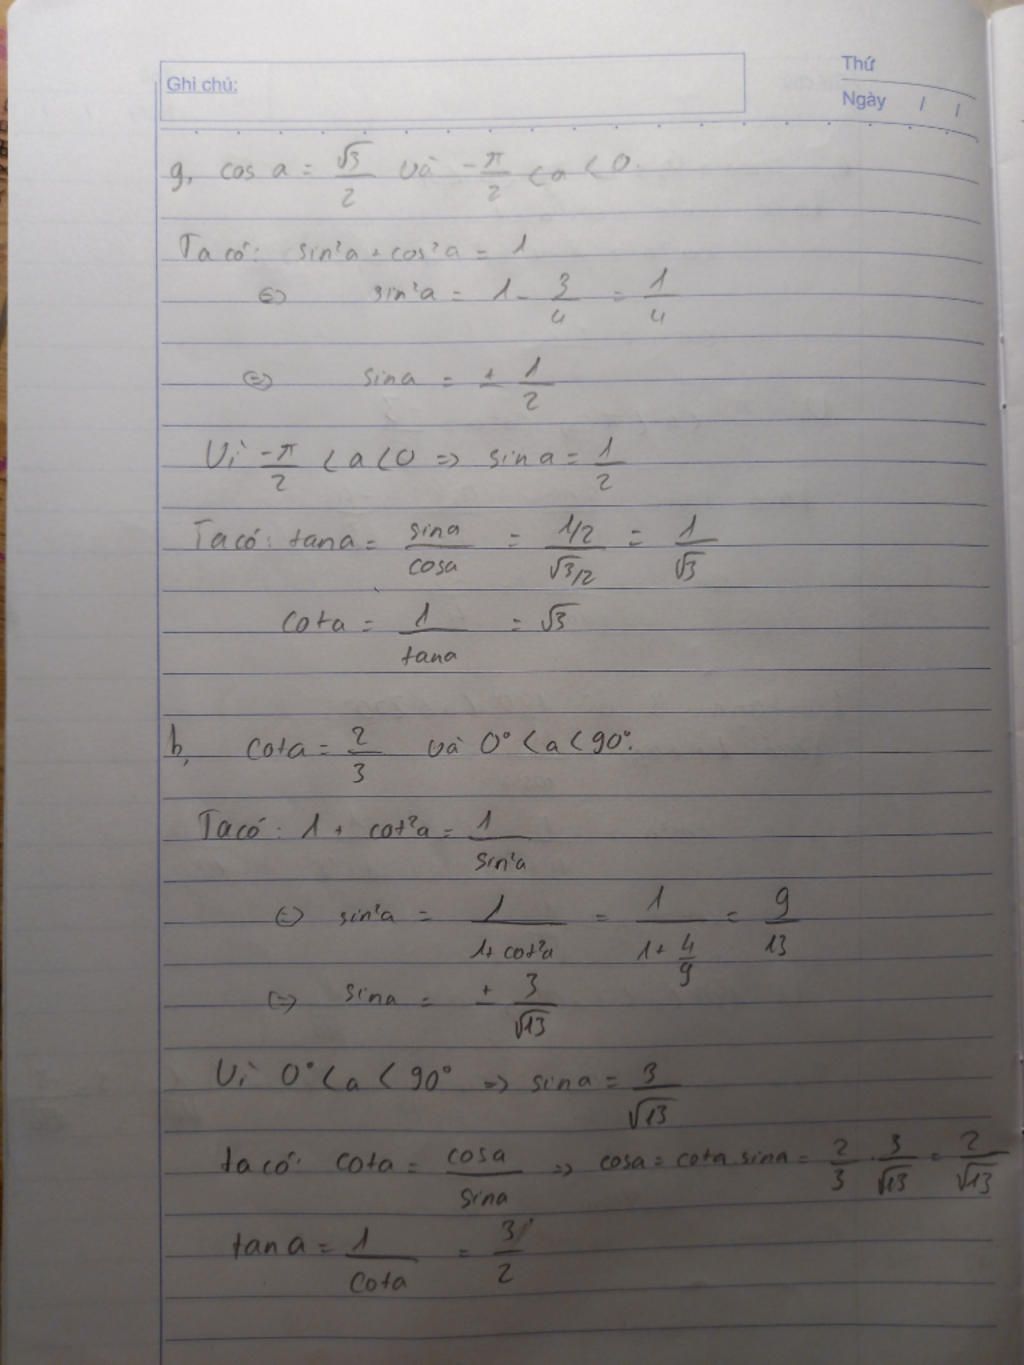 Ghi chú:
Thứ
Ngày / /
g, cos a = √3/2 và -π/2 < a < 0.
Ta có: sin²a + cos²a = 1
⇔ sin²a = 1 - 3/4 = 1/4
⇔ sina = ± 1/2
Vì -π/2 < a < 0 => sin a = 1/2
Ta có: tana = sina/cosa = (1/2)/(√3/2) = 1/√3
cota = 1/tana = √3
h, cota = 2/3 và 0° < a < 90°.
Ta có: 1 + cot²a = 1/sin²a
⇔ sin²a = 1/(1+cot²a) = 1/(1+4/9) = 9/13
⇔ sina = ± 3/√13
Vì 0° < a < 90° => sina = 3/√13
ta có: cota = cosa/sina => cosa = cota.sina = 2/3 . 3/√13 = 2/√13
tan a = 1/cota = 3/2